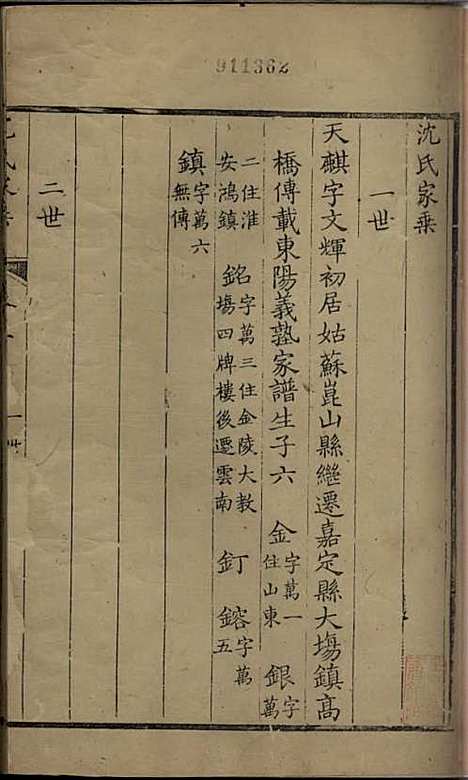 911362
沈氏家乘
一世
天麒字文輝初居姑蘇崑山縣繼遷嘉定縣大塲鎮高
橋傳載東陽義塾家譜生子六 金字萬一住山東 銀字萬
二住淮安鴻鎮 銘字萬三住金陵大教塲四牌樓後遷雲南 釘 鎔字萬五
鎮字萬六無傳
二世